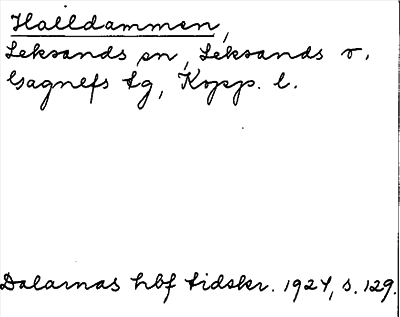 Halldammen,
Leksands sn, Leksands v.
Gagnefs tg, Kopp. l.
Dalarnas hbf tidskr. 1924, s. 129.